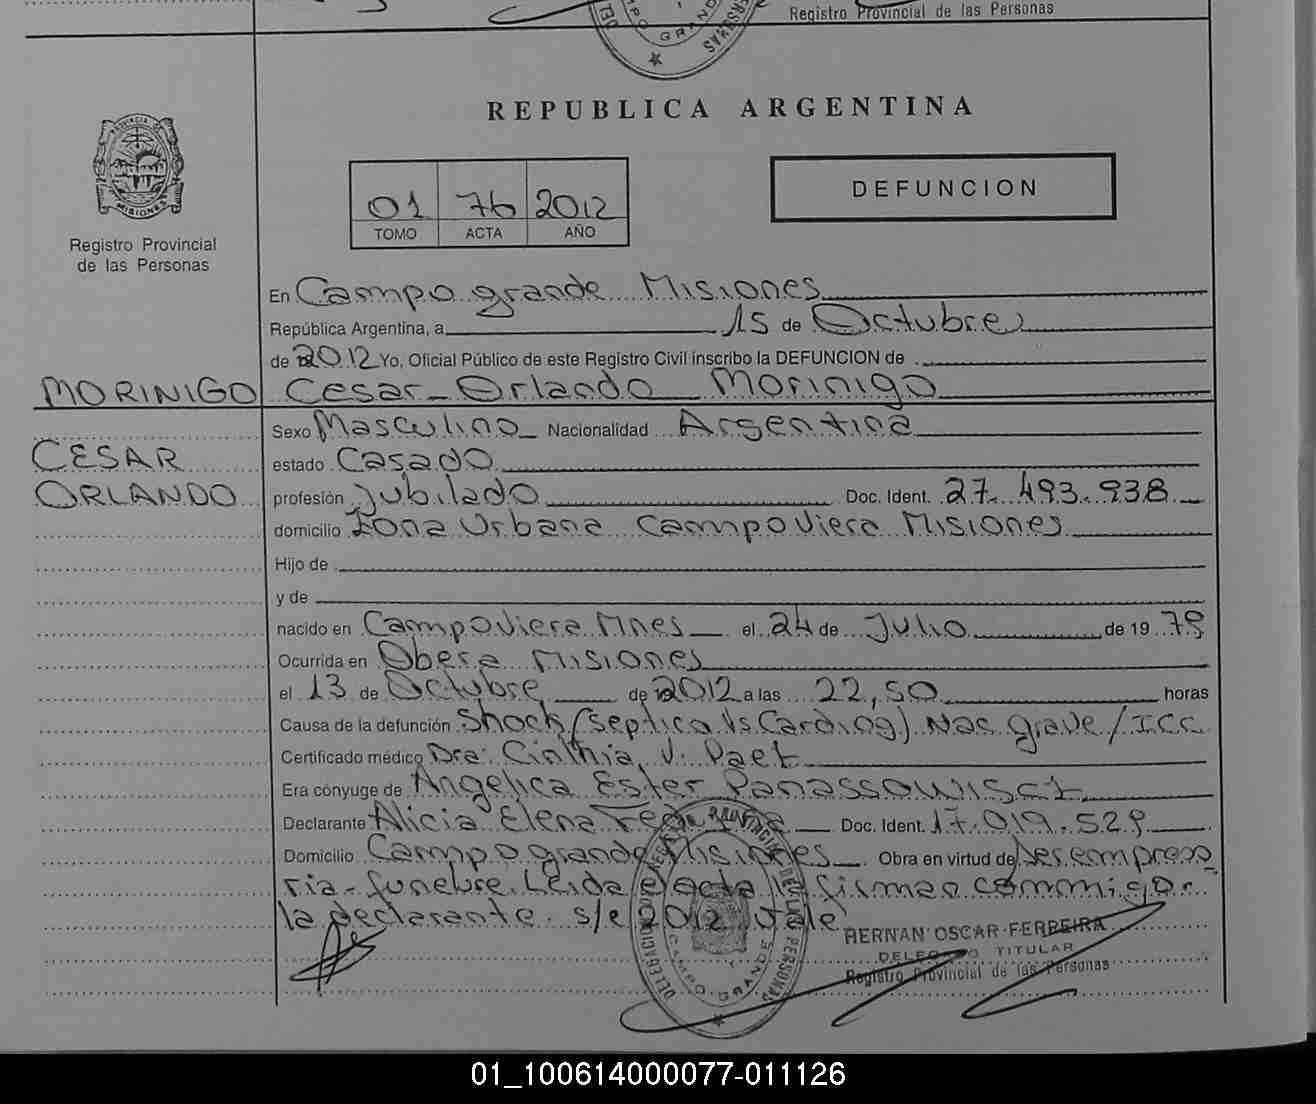 Registro Provincial de las Personas
CAMPO GRANDE
REPUBLICA ARGENTINA
PROVINCIA DE MISIONES
Registro Provincial
de las Personas
01 76 2012
TOMO ACTA AÑO
DEFUNCION
En Campo grande Misiones
República Argentina, a 15 de Octubre
de 2012 Yo, Oficial Público de este Registro Civil inscribo la DEFUNCION de
MORINIGO Cesar Orlando Morinigo
Sexo Masculino Nacionalidad Argentina
CESAR estado Casado
ORLANDO profesión Jubilado Doc. Ident. 27.493.938
domicilio Zona Urbana Campo Viera Misiones
Hijo de
y de
nacido en Campo Viera Mnes el 24 de Julio de 1979
Ocurrida en Obera Misiones
el 13 de Octubre de 2012 a las 22,50 horas
Causa de la defunción Shock (septico Vs Cardiog) Nac grave / ICC
Certificado médico Dra: Cinthia V. Paet
Era cónyuge de Angelica Ester
Declarante Alicia Elena Doc. Ident. 17.019.529
Domicilio Campo grande Misiones Obra en virtud de ser empresa
ria funebre. Leida el acta la firman commigo
la declarante s/e 2012 Vale
HERNAN OSCAR FERREIRA
DELEGADO TITULAR
Registro Provincial de las Personas
DELEGACION PROVINCIAL DE LAS PERSONAS
CAMPO GRANDE
01_100614000077-011126